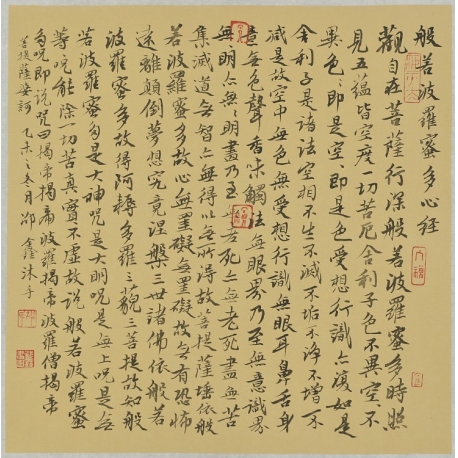 般若波羅蜜多心經
觀自在菩薩行深般若波羅蜜多時照
見五蘊皆空度一切苦厄舍利子色不異空不
異色〻即是空〻即是色受想行識亦復如是
舍利子是諸法空相不生不滅不垢不淨不增不
減是故空中無色無受想行識無眼耳鼻舌身
意無色聲香味觸法無眼界乃至無意識界
無〻明亦無〻明盡乃至無老死亦無老死盡無苦
集滅道無智亦無得以無所得故菩提薩埵依般
若波羅蜜多故心無罣礙無罣礙故無有恐怖
遠離顛倒夢想究竟涅槃三世諸佛依般若
波羅蜜多故得阿耨多羅三藐三菩提故知般
若波羅蜜多是大神咒是大明咒是無上咒是無
等〻咒能除一切苦真實不虛故說般若波羅蜜
多咒即說咒曰揭帝揭帝波羅揭帝波羅僧揭帝
菩提薩婆訶 乙未冬月邵鑫沐手